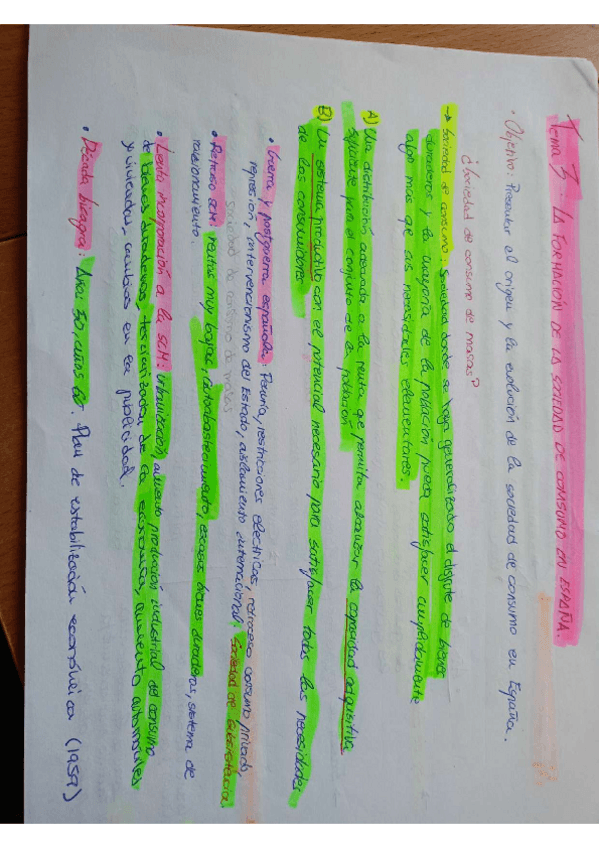 Tema 3 - LA FORMACIÓN DE LA SOCIEDAD DE COMSUMO EN ESPAÑA.
• Objetivo: Presentar el origen y la evolución de la sociedad de consumo en España.
¿Sociedad de consumo de masas?
→ Sociedad de consumo: Sociedad donde se haya generalizado el disfrute de bienes
duraderos y la mayoría de la población pueda satisfacer cumplidamente
algo más que sus necesidades elementares.
A) Una distribución adecuada de la renta que permita alcanzar la capacidad adquisitiva
suficiente para el conjunto de la población
B) Un sistema productivo con el potencial necesario para satisfacer todas las necesidades
de los consumidores
• Guerra y postguerra española: Penuria, restricciones eléctricas, retroceso consumo privado,
represión, intervencionismo del Estado, aislamiento internacional. Sociedad de subsistencia.
sociedad de consumo de masas
• Retraso SCM: rentas muy bajas, desabastecimiento, escasos bienes duraderos, sistema de
racionamiento.
• Lenta incorporación a la SCM: urbanización, aumento producción industrial del consumo
de bienes duraderos, terciarización de la economía, aumento automóviles
y viviendas, cambios en la publicidad.
• Década bisagra: Años 50, años 60. Plan de estabilización económica (1959)